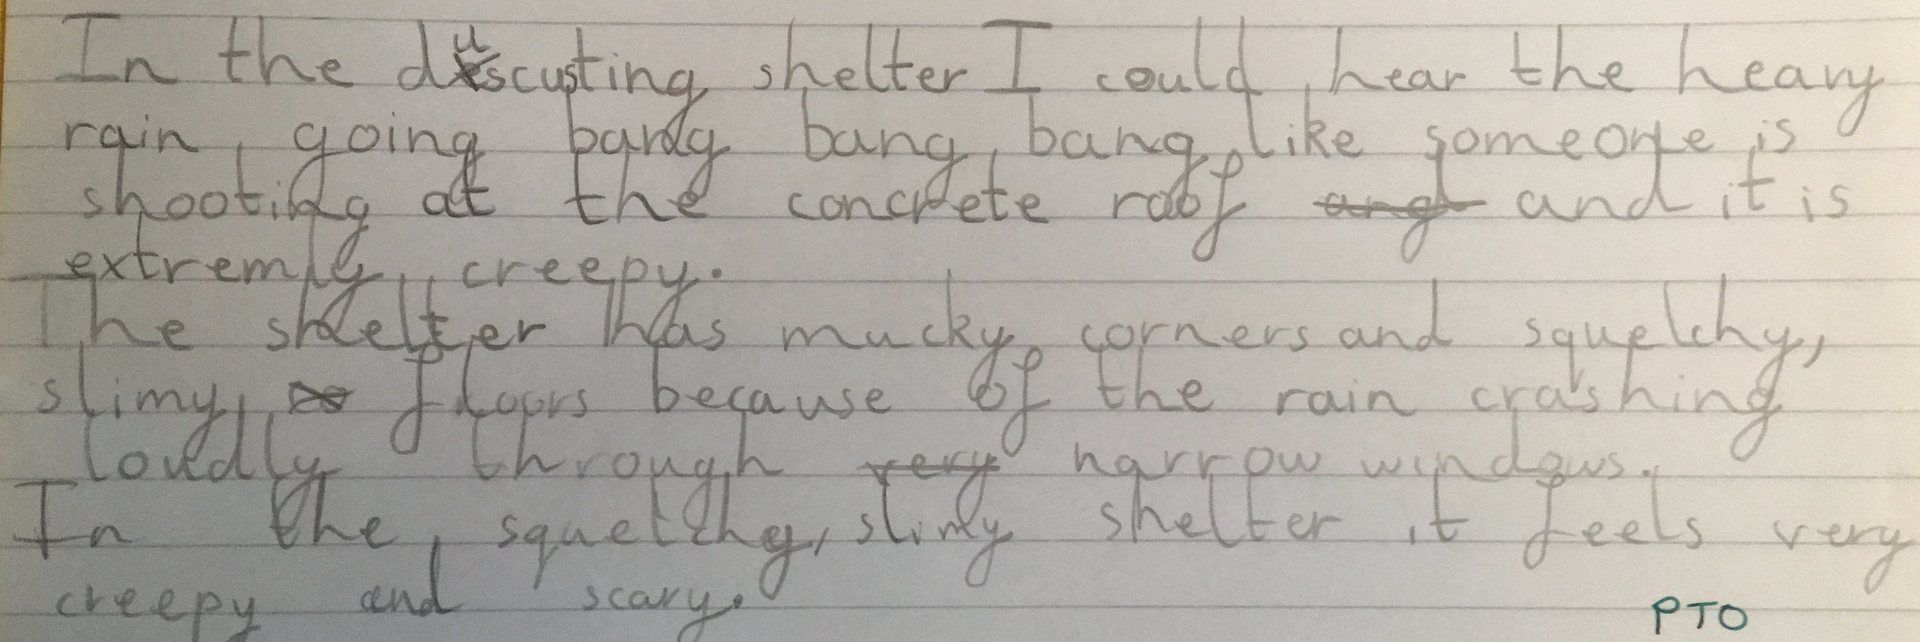 In the duscusting shelter I could hear the heavy
rain going bang bang bang like someone is
shooting at the concrete roof ang and it is
extremly creepy.
The shelter has mucky corners and squelchy,
slimy floors because of the rain crashing
loudly through very narrow windows.
In the squelchy, slimy shelter it feels very
creepy and scary.
PTO